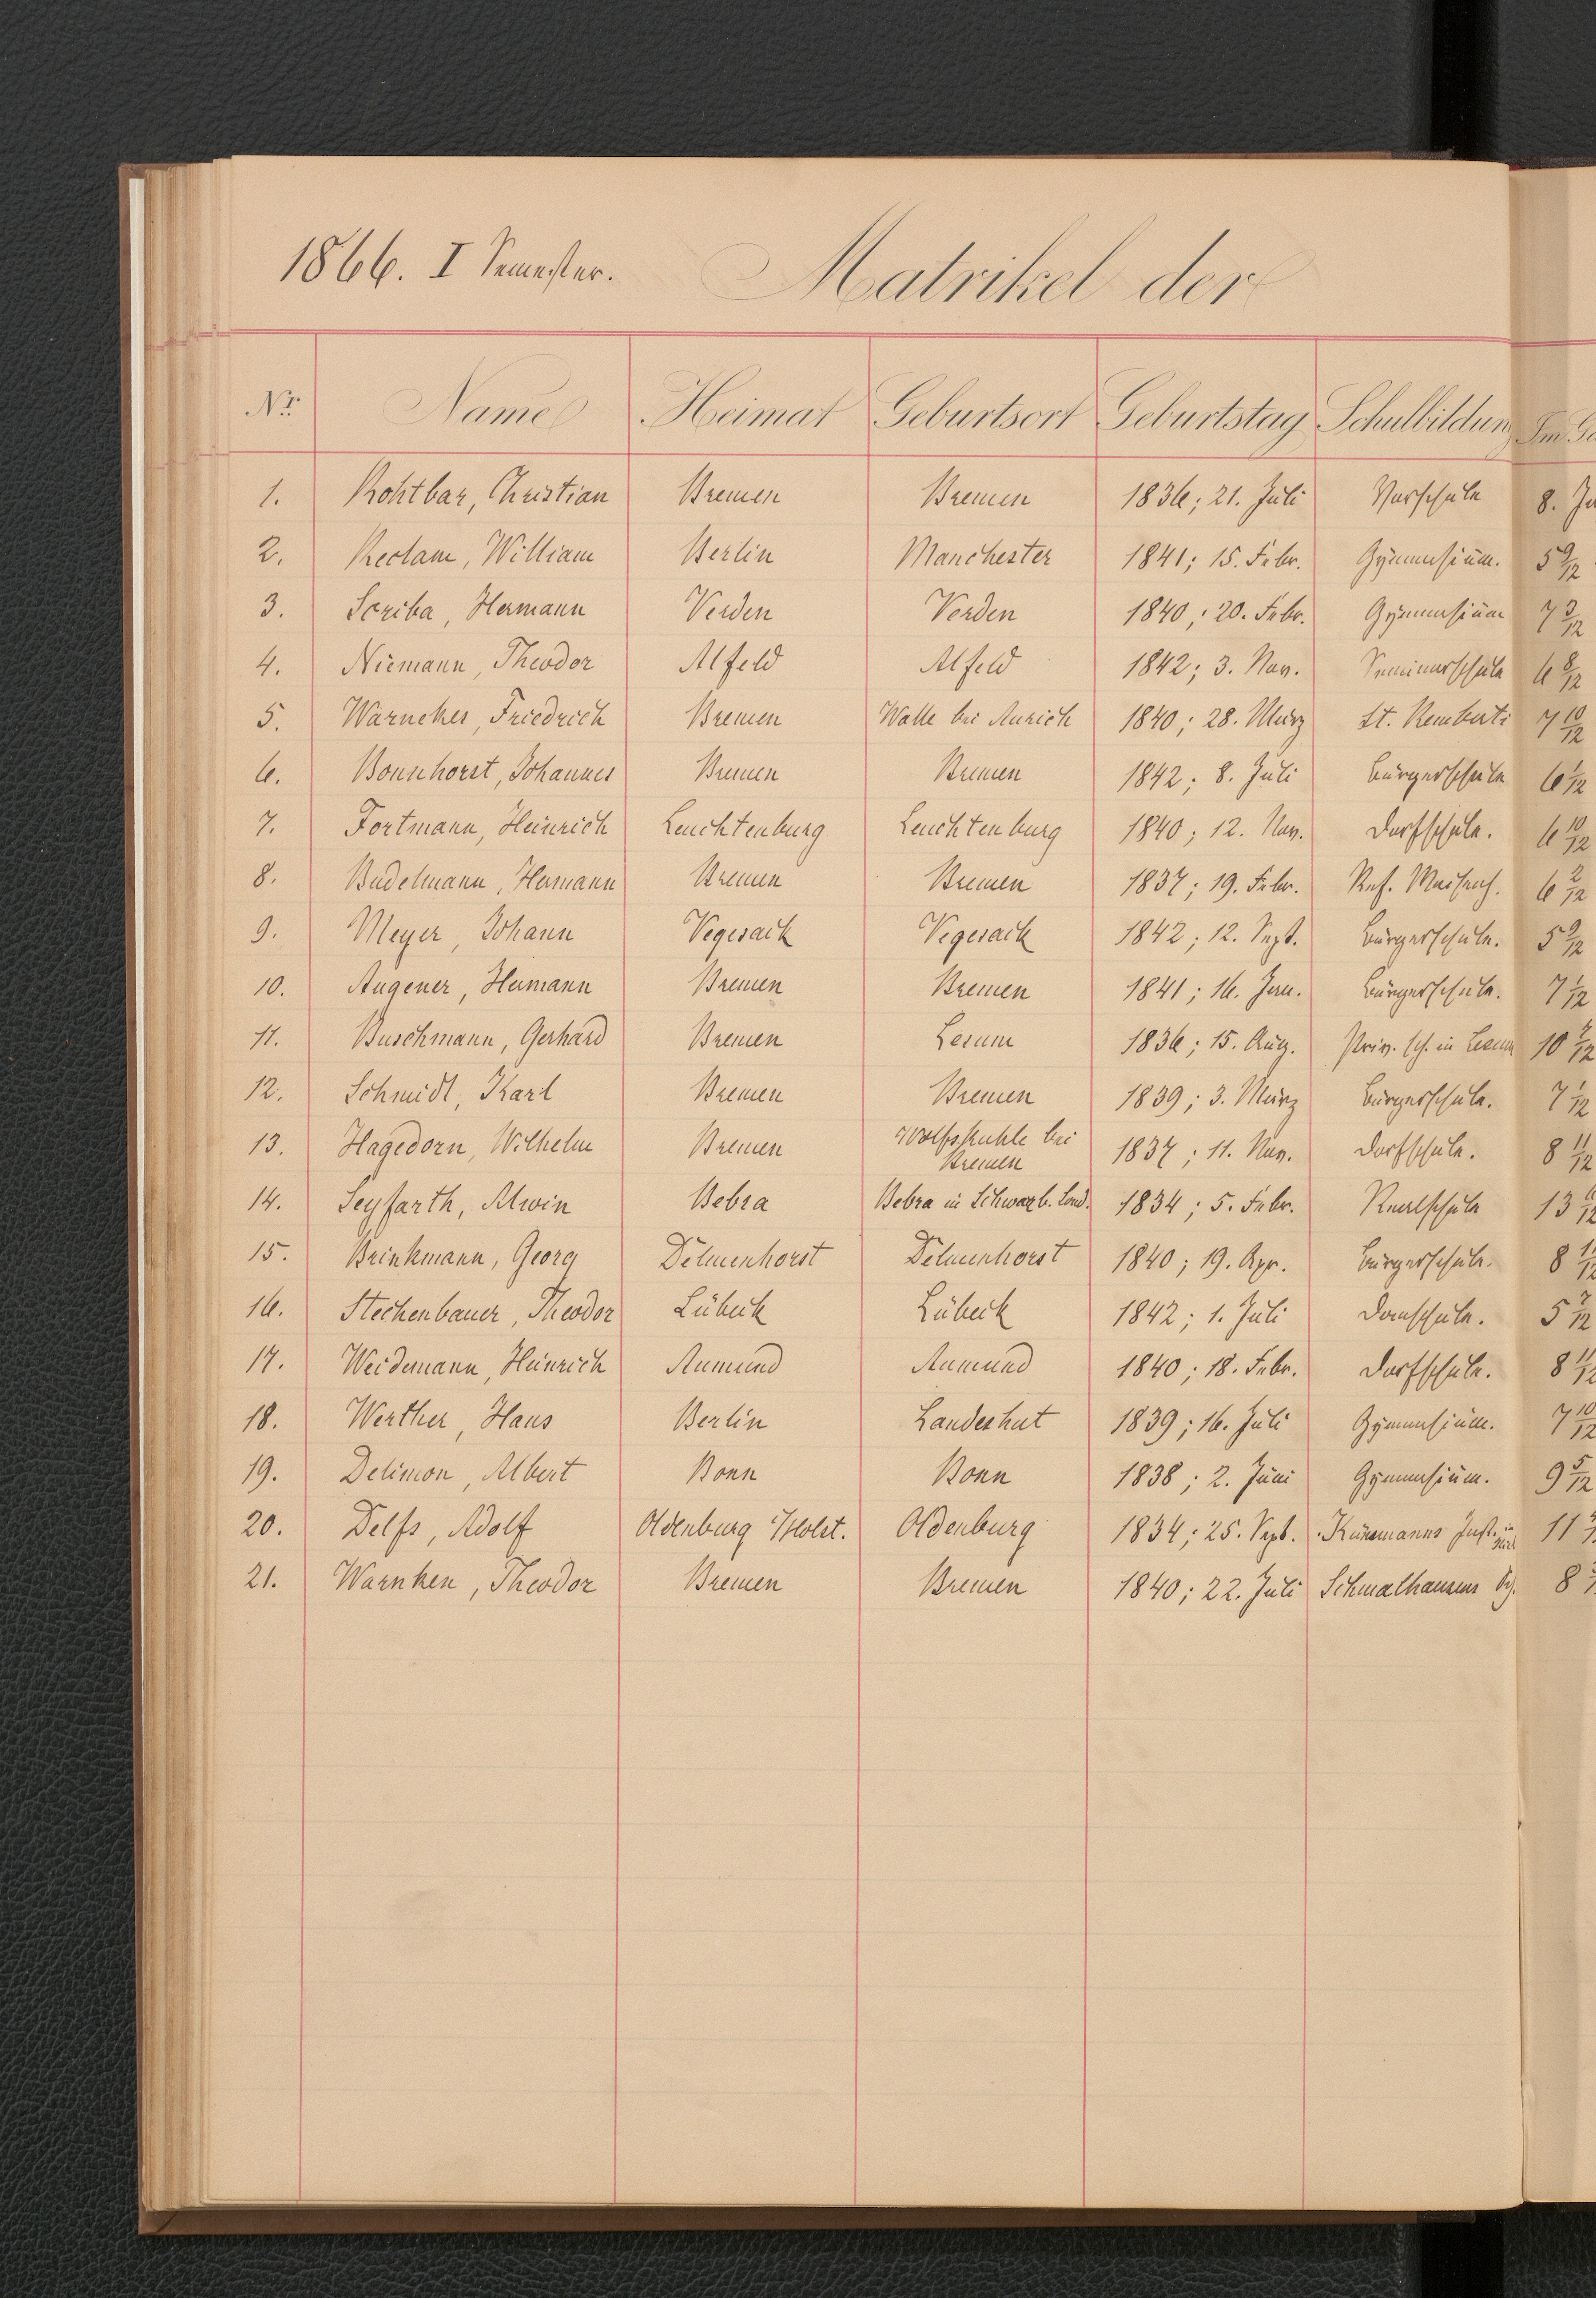 1866. I Semester. Matrikel der
Nr. Name Heimat Geburtsort Geburtstag Schulbildun Im
1. Rohtbar, Christian Bremen Bremen 1836; 21. Juli Vorschule 8.
2. Reclam, William Berlin Manchester 1841; 15. Febr. Gymnasium. 5 9/12
3. Scriba, Hermann Verden Verden 1840; 20. Febr. Gymnasium 7 3/12
4. Niemann, Theodor Alfeld Alfeld 1842; 3. Nov. Seminarschule 6 8/12
5. Warnekes, Friedrich Bremen Walle bei Aurich 1840; 28. März St. Remberti 7 10/12
6. Bonnhorst, Johannes Bremen Bremen 1842; 8. Juli Bürgerschule 6 1/12
7. Fortmann, Heinrich Leuchtenburg Leuchtenburg 1840; 12. Nov. Dorfschule. 6 10/12
8. Budelmann, Hermann Bremen Bremen 1837; 19. Febr. Ref. Waisenh. 6 2/12
9. Meyer, Johann Vegesack Vegesack 1842; 12. Sept. Bürgerschule. 5 9/12
10. Augener, Hermann Bremen Bremen 1841; 16. Jan. Bürgerschule. 7 1/12
11. Buschmann, Gerhard Bremen Lesum 1836; 15. Aug. Priv. Sch. in Lesum 10
12. Schmidt, Karl Bremen Bremen 1839; 3. März Bürgerschule. 7 1/12
13. Hagedorn, Wilhelm Bremen Wolfskuhle bei Bremen 1837; 11. Nov. Dorfschule. 8 11/12
14. Seyfarth, Alwin Bebra Bebra in Schwarzb. Sond. 1834; 5. Febr. Realschule 13
15. Brinkmann, Georg Delmenhorst Delmenhorst 1840; 19. Apr. Bürgerschule. 8
16. Steckenbauer, Theodor Lübeck Lübeck 1842; 1. Juli Domschule. 5 7/12
17. Weidemann, Heinrich Aumund Aumund 1840; 18. Febr. Dorfschule. 8 11/12
18. Werther, Hans Berlin Landeshut 1839; 16. Juli Gymnasium. 7 10/12
19. Delimon, Albert Bonn Bonn 1838; 2. Juni Gymnasium. 9 5/12
20. Delfs, Adolf Oldenburg i/Holst. Oldenburg 1834; 25. Sept. Künemanns Inst. in 11
21. Warnken, Theodor Bremen Bremen 1840; 22. Juli Schmalhausens Sch. 8